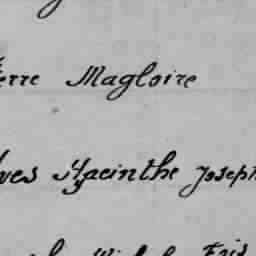 erre Magloire
ves Hyacinthe Joseph